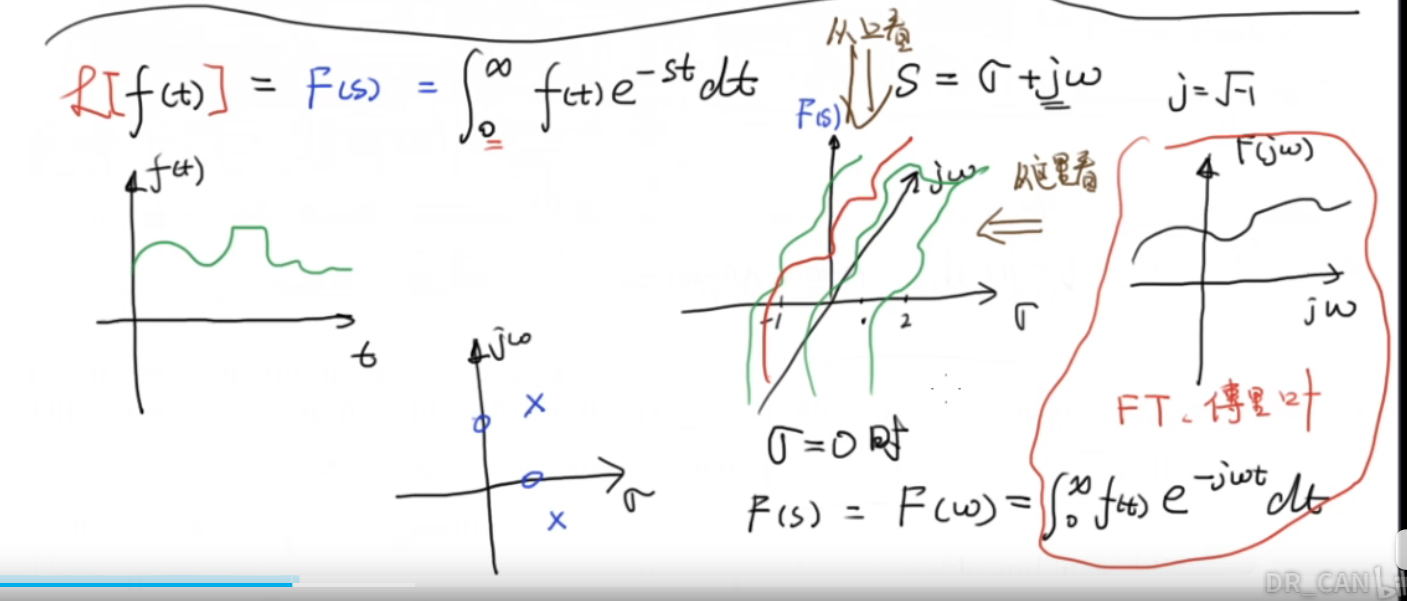 从上看
ℒ[f(t)] = F(s) = ∫₀^∞ f(t) e^{-st} dt
S = σ + jω
j = √-1
f(t)
t
F(s)
jω
从这里看
-1
2
σ
F(jω)
jω
FT、傅里叶
jω
σ
σ = 0 时
F(s) = F(ω) = ∫₀^∞ f(t) e^{-jωt} dt
DR_CAN